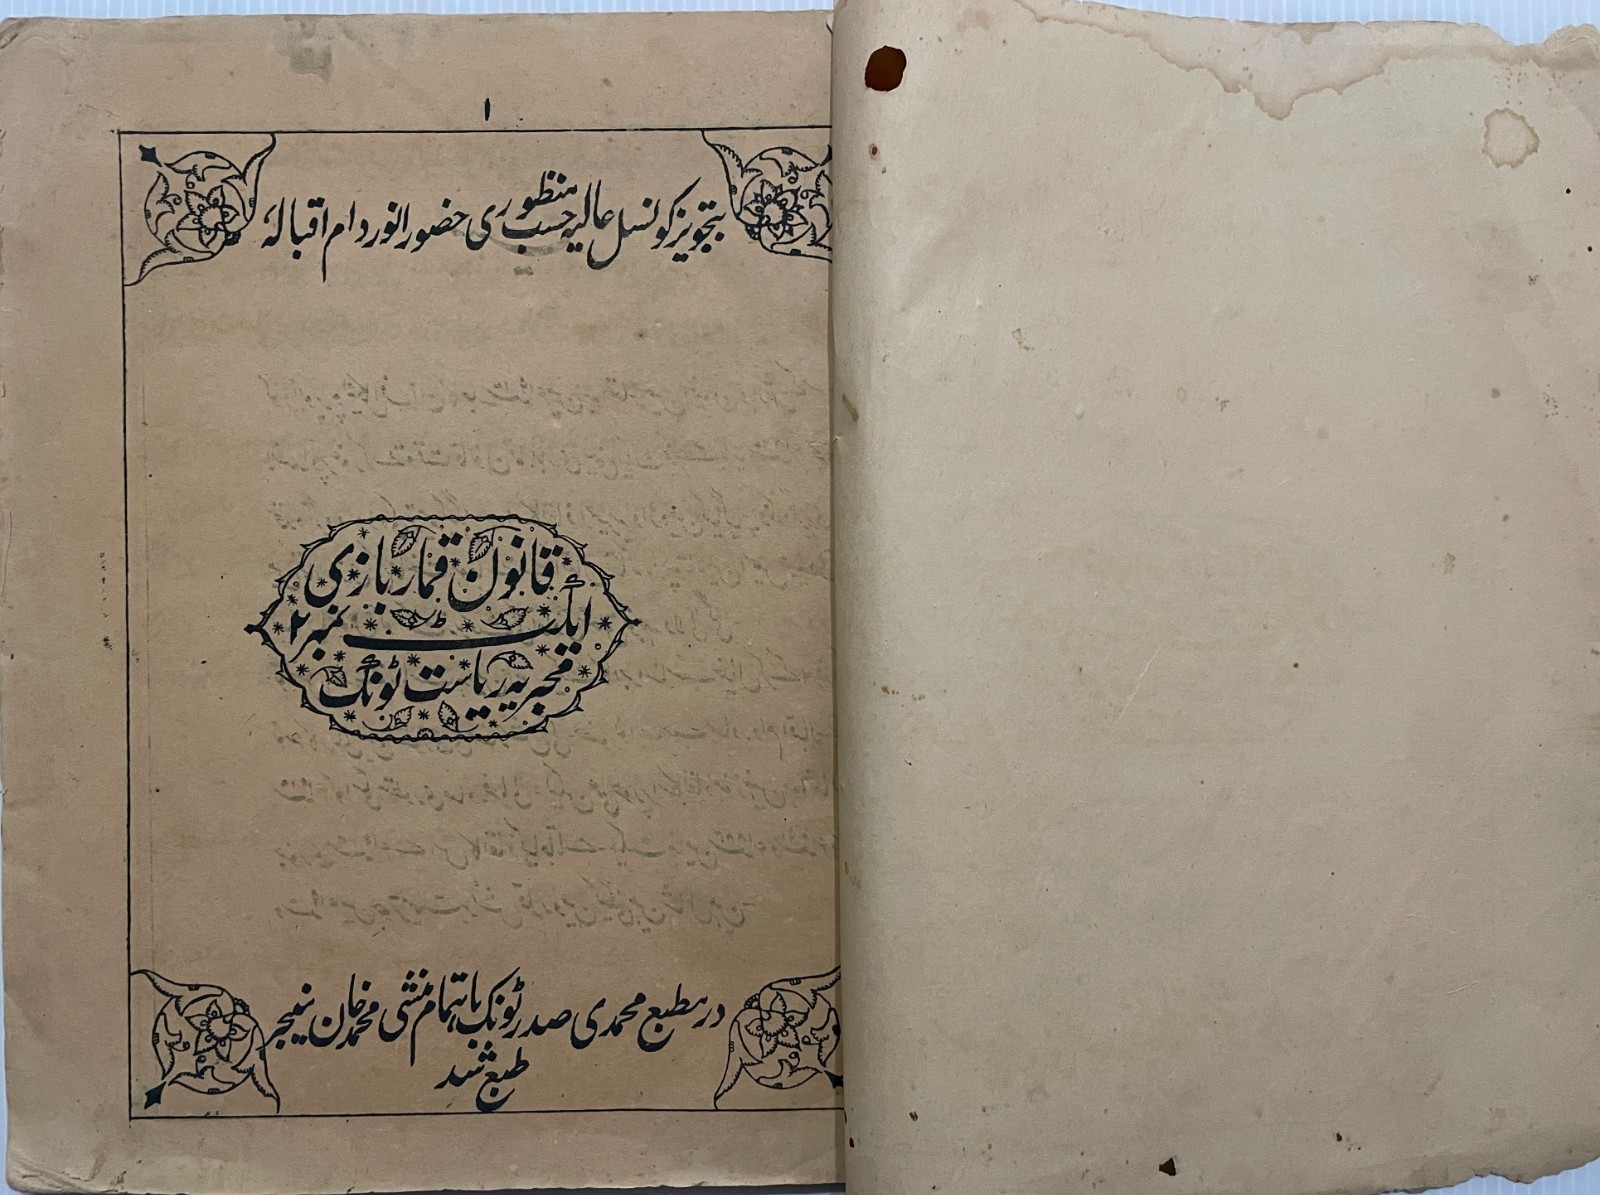 ۱
بتجویز کونسل عالیہ حسب منظوری حضور انور دام اقبالہٗ
قانون قمار بازی
ایکٹ نمبر ۲
مجریہ ریاست ٹونک
در مطبع محمدی صدر ٹونک باہتمام منشی محمد خان منیجر
طبع شد